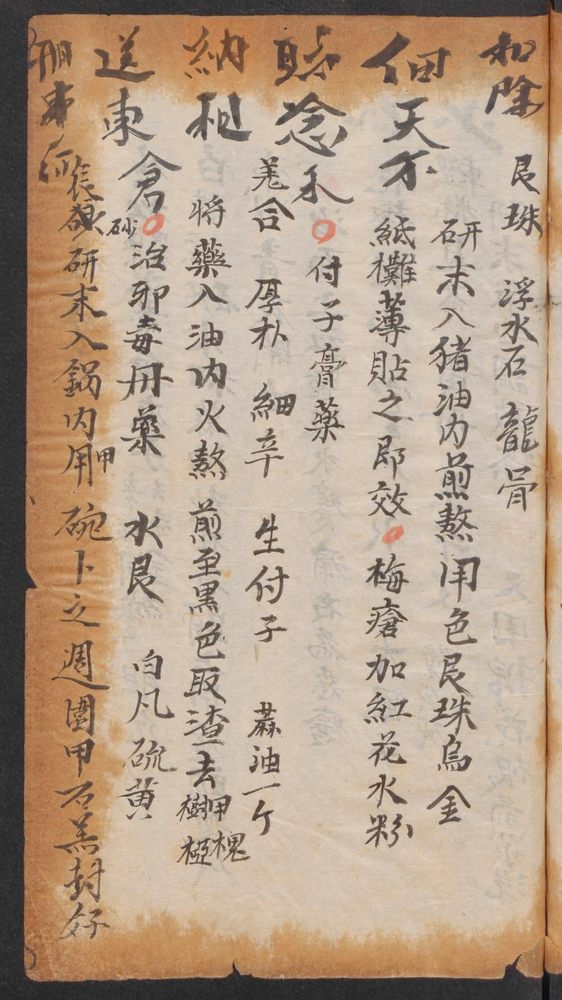 和除
艮珠 浮水石 龍骨
研末入猪油内煎熬用色艮珠烏金
佃天不
紙攤薄貼之即效 梅瘡加紅花水粉
念禾
付子膏藥
羗合 厚朴 細辛 生付子 蔴油一斤
納租
将藥入油内火熬煎至黑色取渣去 甲槐樹椏
送東倉
砂
治邪毒丹藥 水艮 白凡 硫黄
研末入鍋内用甲碗卜之週圍甲石羔封好